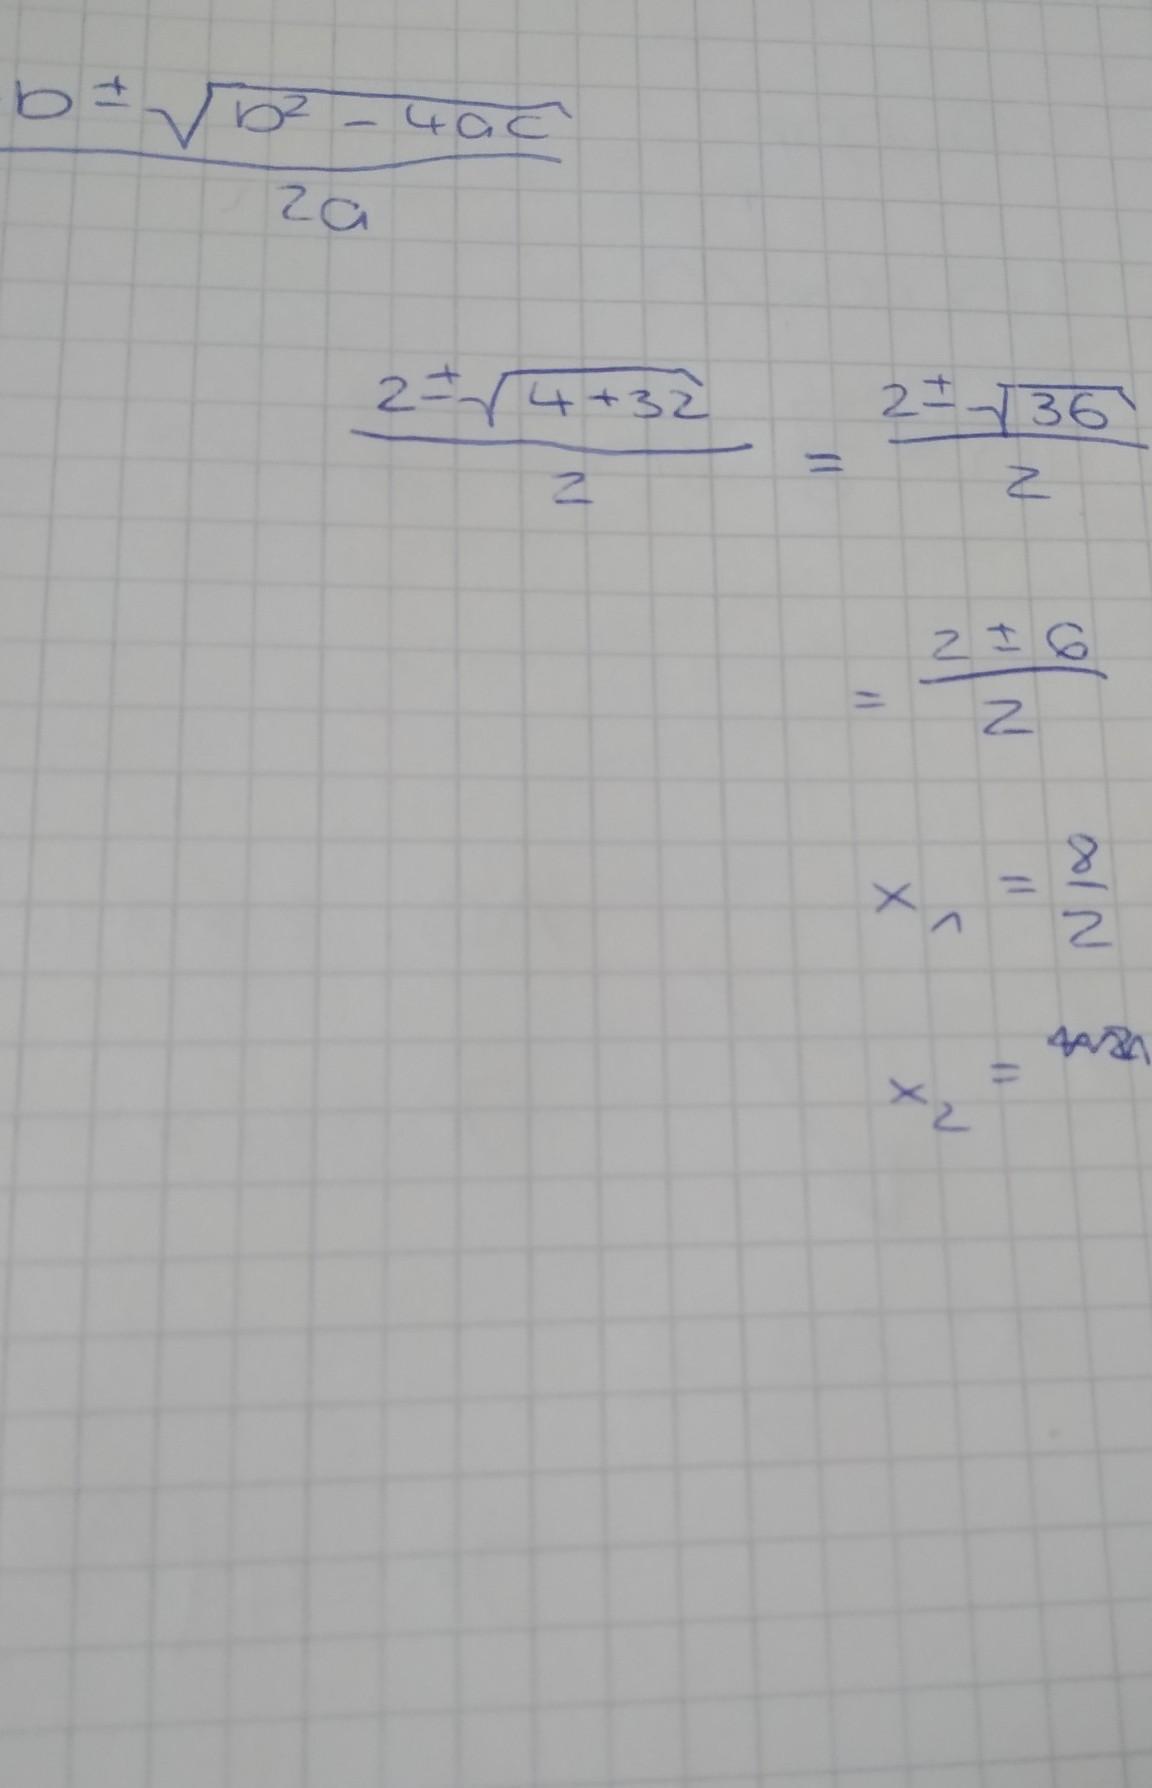 b ± √(b² - 4ac)
2a
2 ± √(4 + 32) / 2 = 2 ± √36 / 2
= 2 ± 6 / 2
x₁ = 8/2
x₂ =